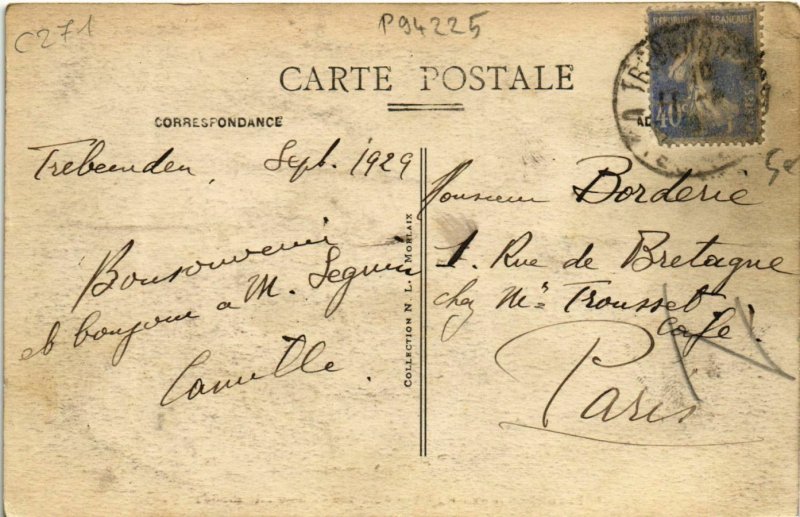 C271
P94225
CARTE POSTALE
CORRESPONDANCE
AD
RÉPUBLIQUE FRANÇAISE
40
Trébeurden, Sept. 1929
Bon souvenir
et bonjour a M. Seguin
Camille.
COLLECTION N. L. MORLAIX
Monsieur Borderie
1. Rue de Bretagne
chez Mr Trousset
Café.
Paris